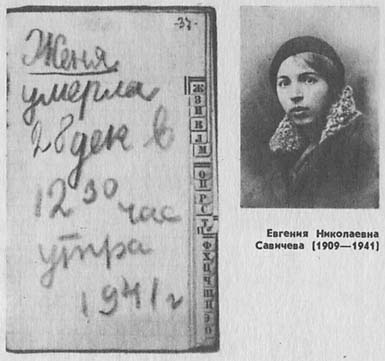 -37-
Женя
умерла
28 дек в
12 30 час
утра
1941 г
Ж
З
И
К
Л
М
О
П
Р
С
Т
Ф
Х
Ц
Ч
Евгения Николаевна
Савичева (1909—1941)